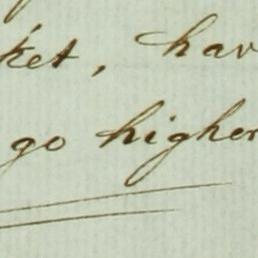 ket, hav
go higher